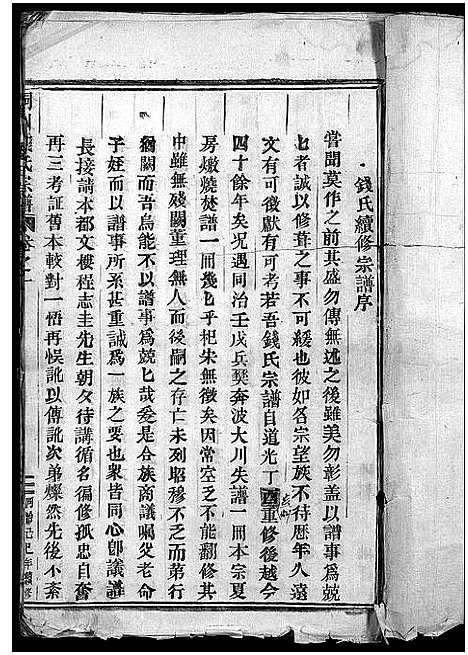 錢氏續修宗譜序
嘗聞莫作之前其盛勿傳無述之後雖美勿彰盖以譜事爲兢
七者誠以修葺之事不可緩也彼如各宗望族不待歷年久遠
文有可徵献有可考若吾錢氏宗譜自道光丁酉重修後越今
四十餘年矣况遇同治壬戌兵燹奔波大川失譜一冊本宗夏
房燉燒焚譜一冊幾乜乎杞朱無徵矣因常空乏不能翻修其
中雖無殘闕董理無人而後嗣之存亡未列昭穆不乏而第行
猶關而吾烏能不以譜事爲兢乜哉爰是合族商議嘱父老命
子姪而以譜事所系甚重誠爲一族之要也衆皆同心卽議謹
長接請本都文樓程志圭先生朝夕待講循名徧修孤忠自奮
再三考証舊本較對一悟再悞訛以傳訛次弟燦然先後不紊
氏宗譜